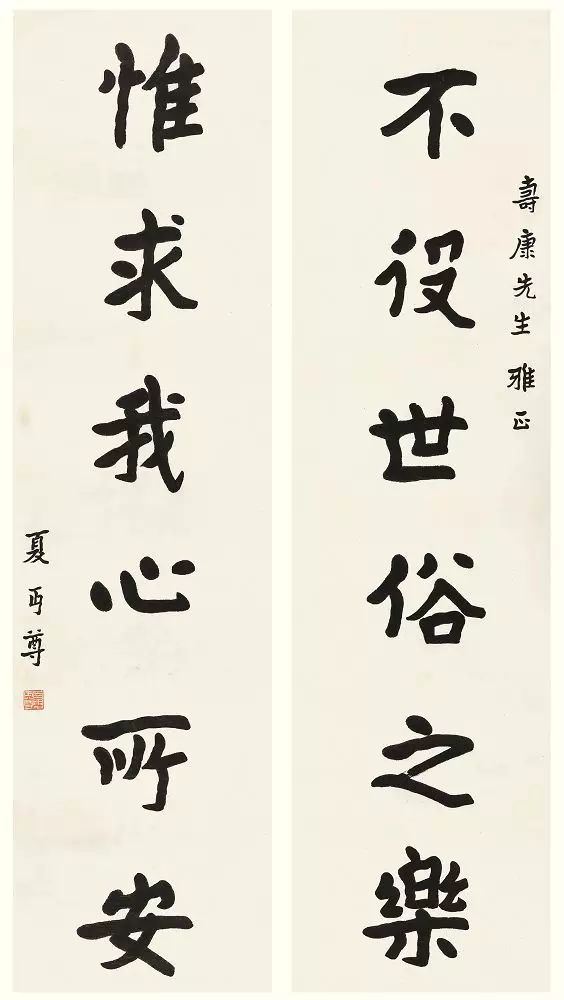 壽康先生雅正
不役世俗之樂
惟求我心所安
夏丏尊